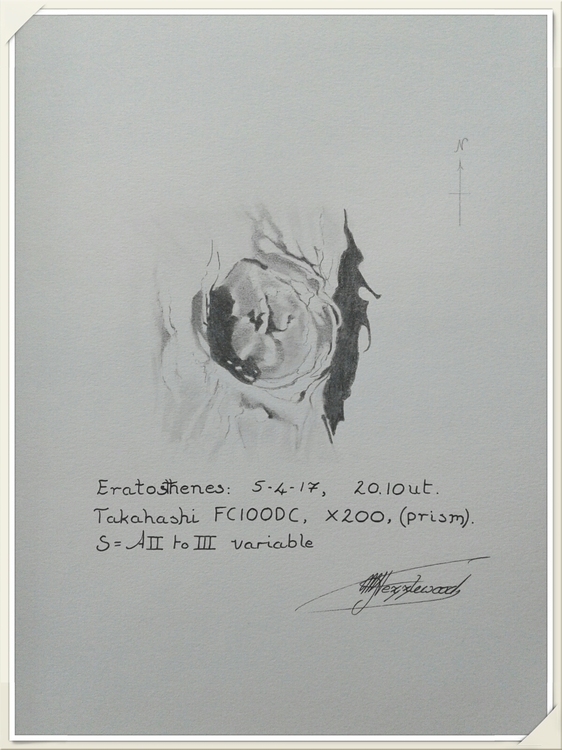 N
Eratosthenes: 5-4-17, 20.10ut.
Takahashi FC100DC, X200, (prism).
S = AII to III variable